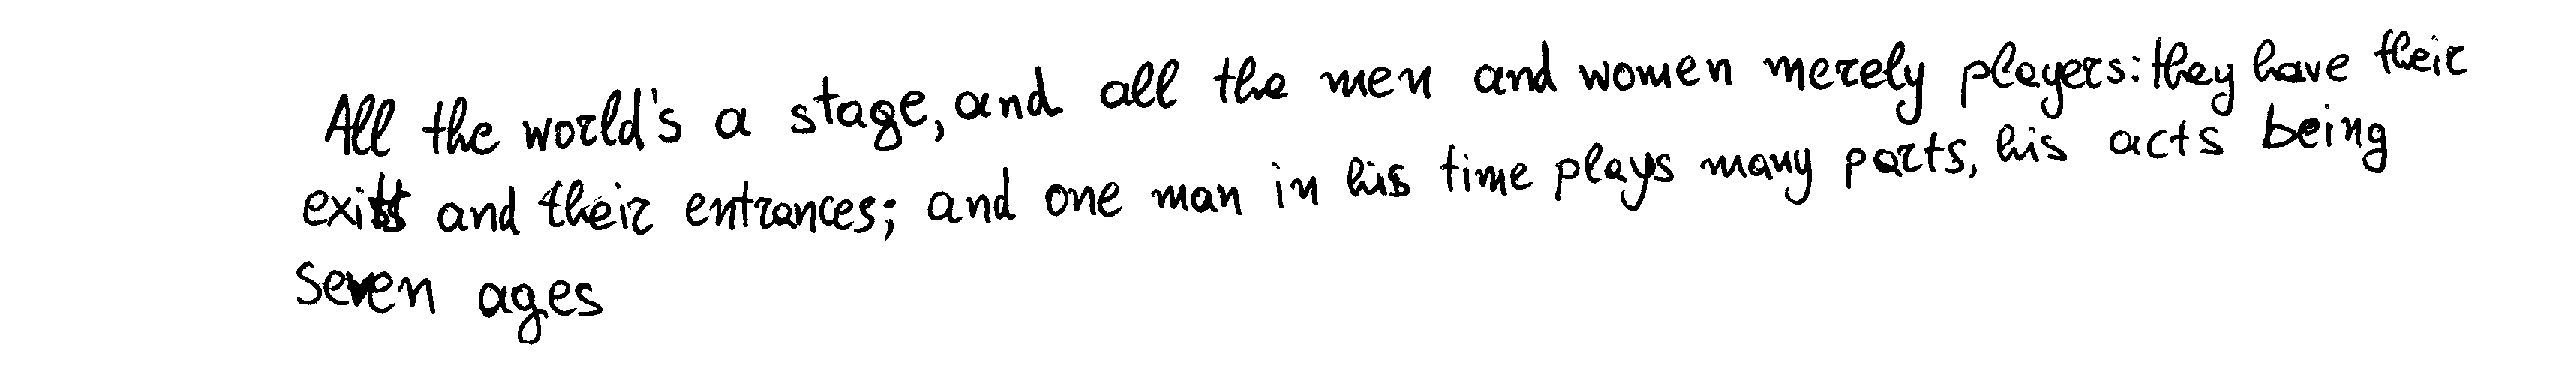 All the world's a stage, and all the men and women merely players: they have their
exits and their entrances; and one man in his time plays many parts, his acts being
seven ages